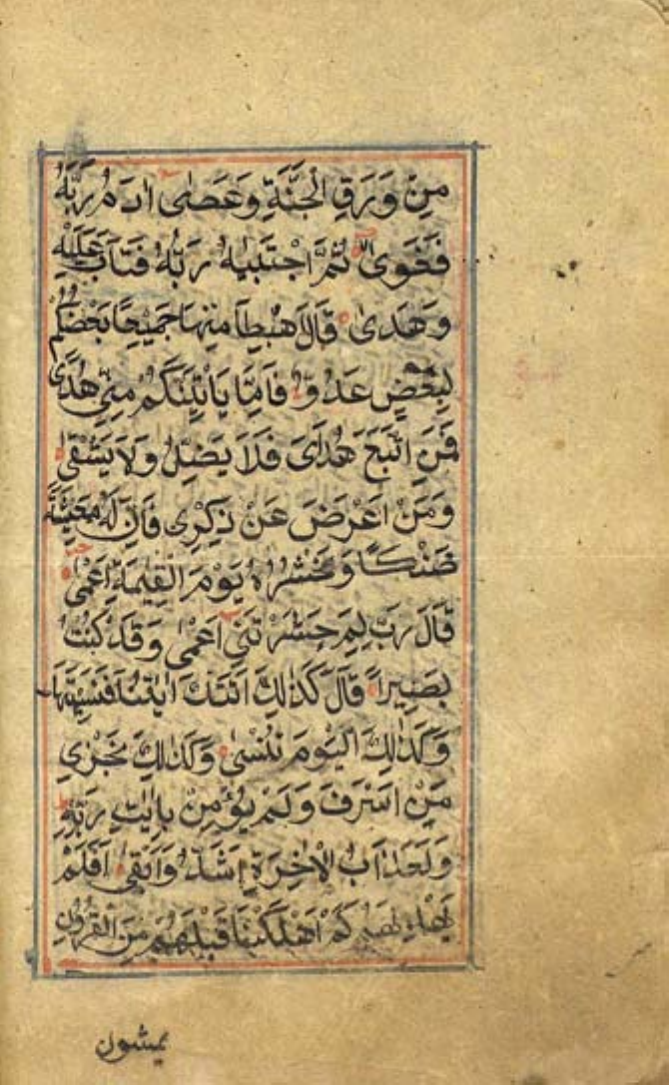 مِنْ وَرَقِ الْجَنَّةِ وَعَصٰى اٰدَمُ رَبَّهُ
فَغَوٰى ثُمَّ اجْتَبٰیهُ رَبُّهُ فَتَابَ عَلَيْهِ
وَهَدٰى قَالَ اهْبِطَا مِنْهَا جَمِيْعًا بَعْضُكُمْ
لِبَعْضٍ عَدُوٌّ فَاِمَّا يَاْتِيَنَّكُمْ مِنِّي هُدًى
فَمَنِ اتَّبَعَ هُدَاىَ فَلَا يَضِلُّ وَلَا يَشْقٰى
وَمَنْ اَعْرَضَ عَنْ ذِكْرِى فَاِنَّ لَهُ مَعِيْشَةً
ضَنْكًا وَنَحْشُرُهُ يَوْمَ الْقِيٰمَةِ اَعْمٰى
قَالَ رَبِّ لِمَ حَشَرْتَنِى اَعْمٰى وَقَدْ كُنْتُ
بَصِيْرًا قَالَ كَذٰلِكَ اَتَتْكَ اٰيٰتُنَا فَنَسِيْتَهَا
وَكَذٰلِكَ الْيَوْمَ تُنْسٰى وَكَذٰلِكَ نَجْزِى
مَنْ اَسْرَفَ وَلَمْ يُؤْمِنْ بِاٰيٰتِ رَبِّهِ
وَلَعَذَابُ الْاٰخِرَةِ اَشَدُّ وَاَبْقٰى اَفَلَمْ
يَهْدِ لَهُمْ كَمْ اَهْلَكْنَا قَبْلَهُمْ مِنَ الْقُرُوْنِ
يمشون